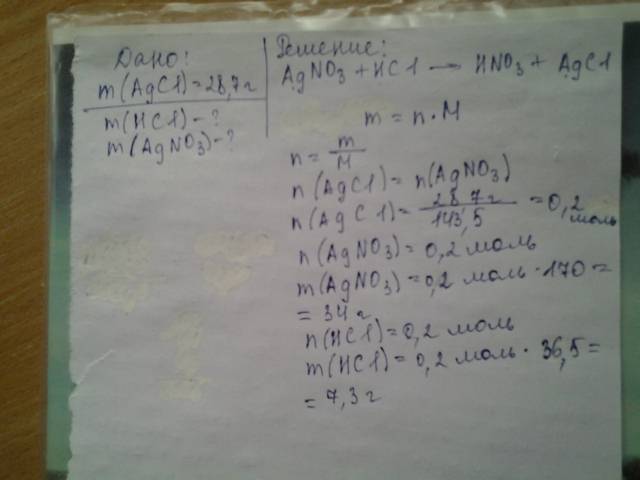 Дано:
m(AgCl)=28,7г
m(HCl)-?
m(AgNO3)-?
Решение:
AgNO3+HCl → HNO3+AgCl
m=n·M
n=m/M
n(AgCl)=n(AgNO3)
n(AgCl)=28,7г/143,5=0,2 моль
n(AgNO3)=0,2 моль
m(AgNO3)=0,2 моль·170=
=34 г
n(HCl)=0,2 моль
m(HCl)=0,2 моль·36,5=
=7,3 г